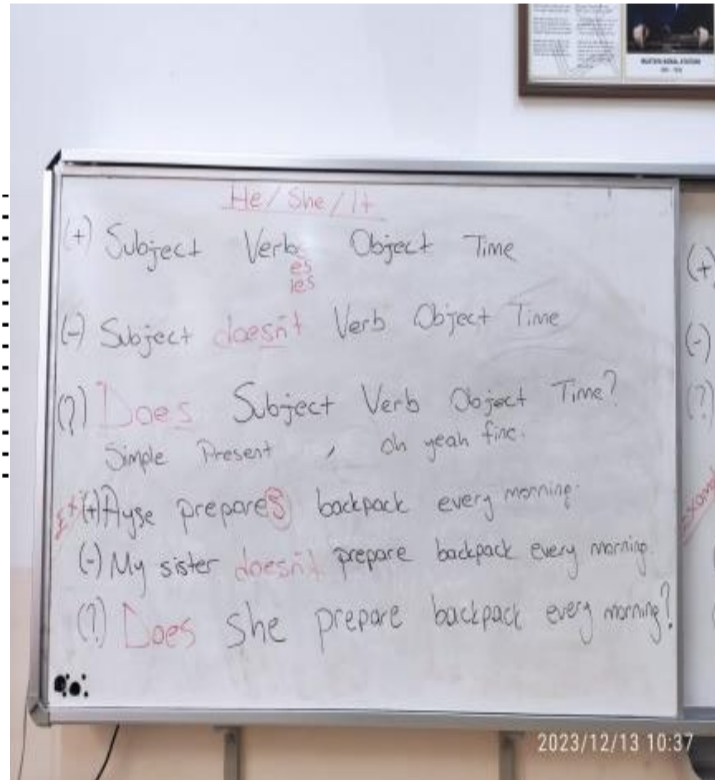 He/She/It
(+) Subject Verbs Object Time
es
ies
(-) Subject doesn't Verb Object Time
(?) Does Subject Verb Object Time?
Simple Present, oh yeah fine.
Ex (+) Ayse prepares backpack every morning.
(-) My sister doesn't prepare backpack every morning.
(?) Does she prepare backpack every morning?
(+)
(-)
(?)
2023/12/13 10:37